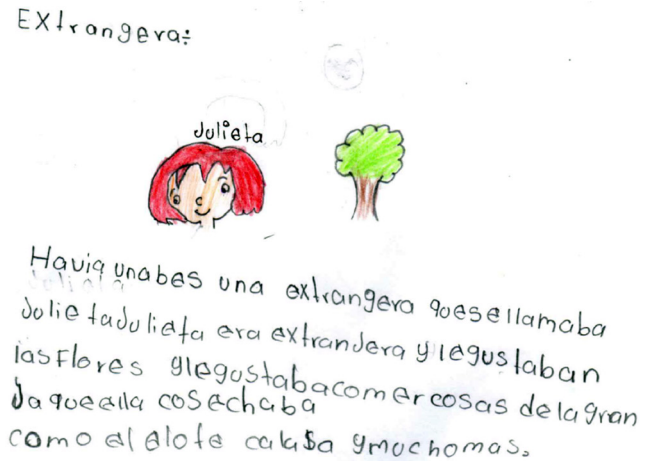 EXtrangera:
Julieta
Havia unabes una extrangera quesellamaba
Julietadulieta era extranJera y legustaban
lasFlores ylegustabacomer cosas de lagran
Ja queella cosechaba
como el elote calaBa ymuchomas.